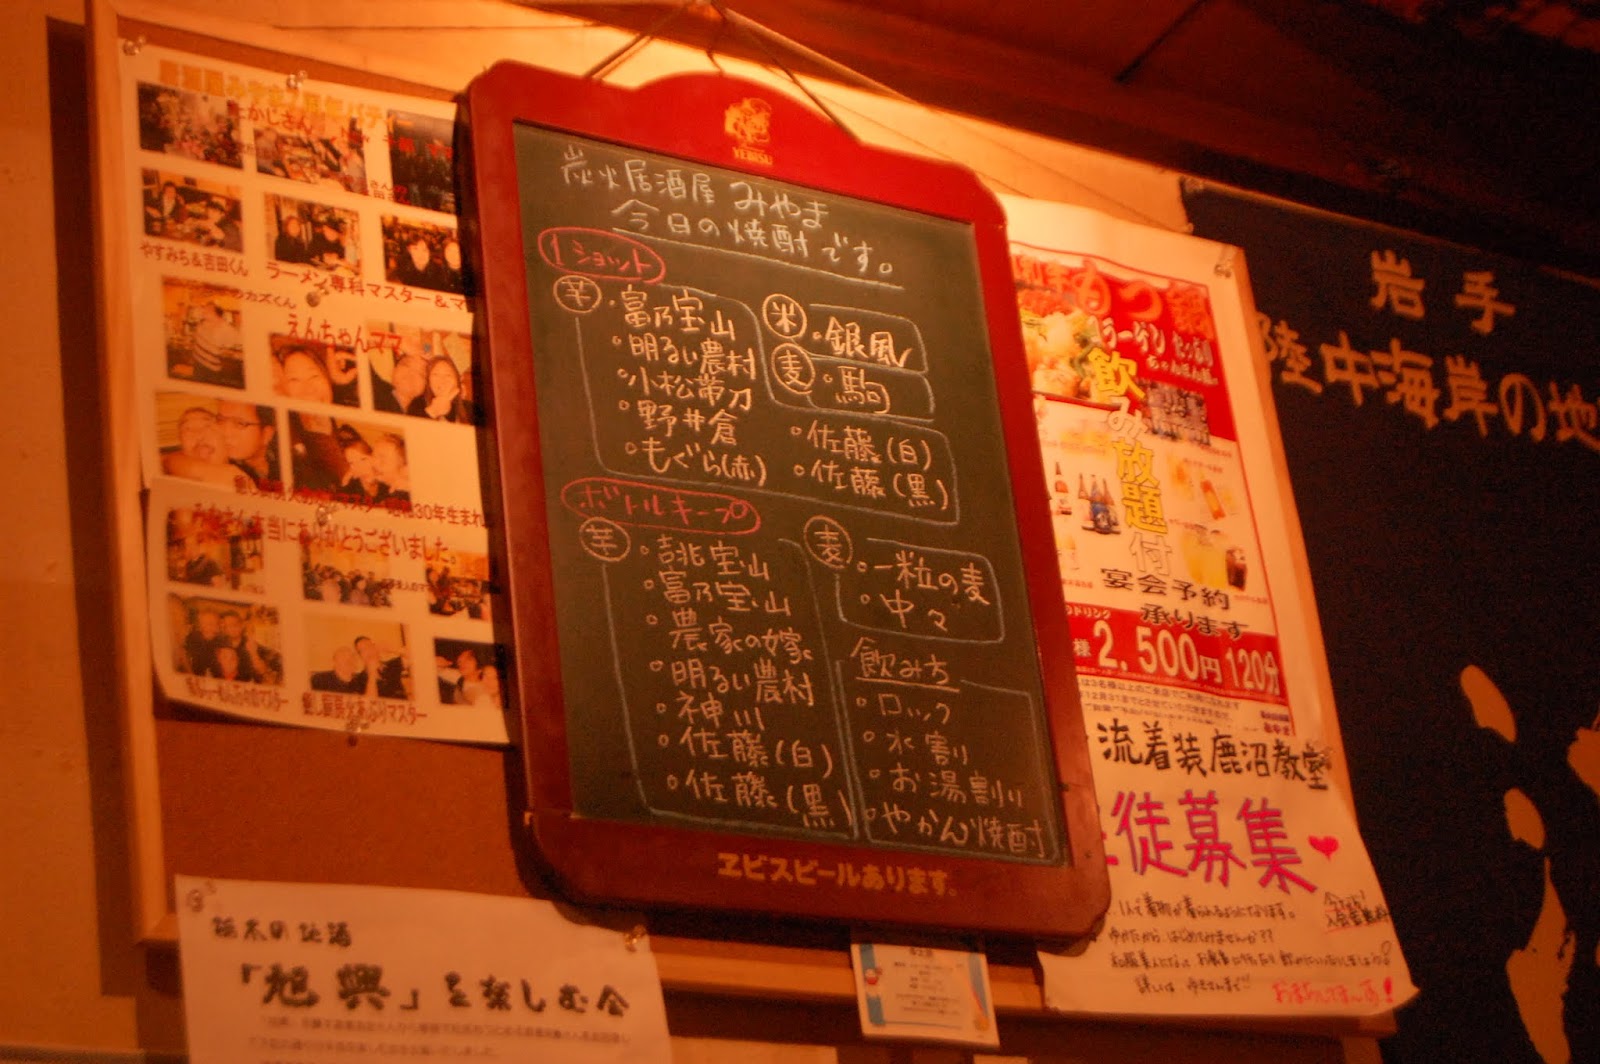 YEBISU
炭火居酒屋 みやま
今日の焼酎です。
1ショット
芋
・富乃宝山
・明るい農村
・小松帯刀
・野井倉
・もぐら(赤)
米
・銀風
麦
・駒
・佐藤(白)
・佐藤(黒)
ボトルキープ
芋
・吉兆宝山
・富乃宝山
・農家の嫁
・明るい農村
・神川
・佐藤(白)
・佐藤(黒)
麦
・一粒の麦
・中々
飲み方
・ロック
・水割
・お湯割り
・やかん焼酎
ヱビスビールあります。
たかしさん
やすみち&吉田くん
ラーメン専科マスター&マ
カズくん
えんちゃんママ
昭和30年生まれ
みなさん本当にありがとうございました。
栃木の地酒
「旭興」を楽しむ会
もつ鍋
コラーゲンたっぷり
飲み放題付
宴会予約
承ります
ドリンク
様 2,500円 120分
流着装鹿沼教室
生徒募集
おまちしてま〜す!
岩手
陸中海岸の地